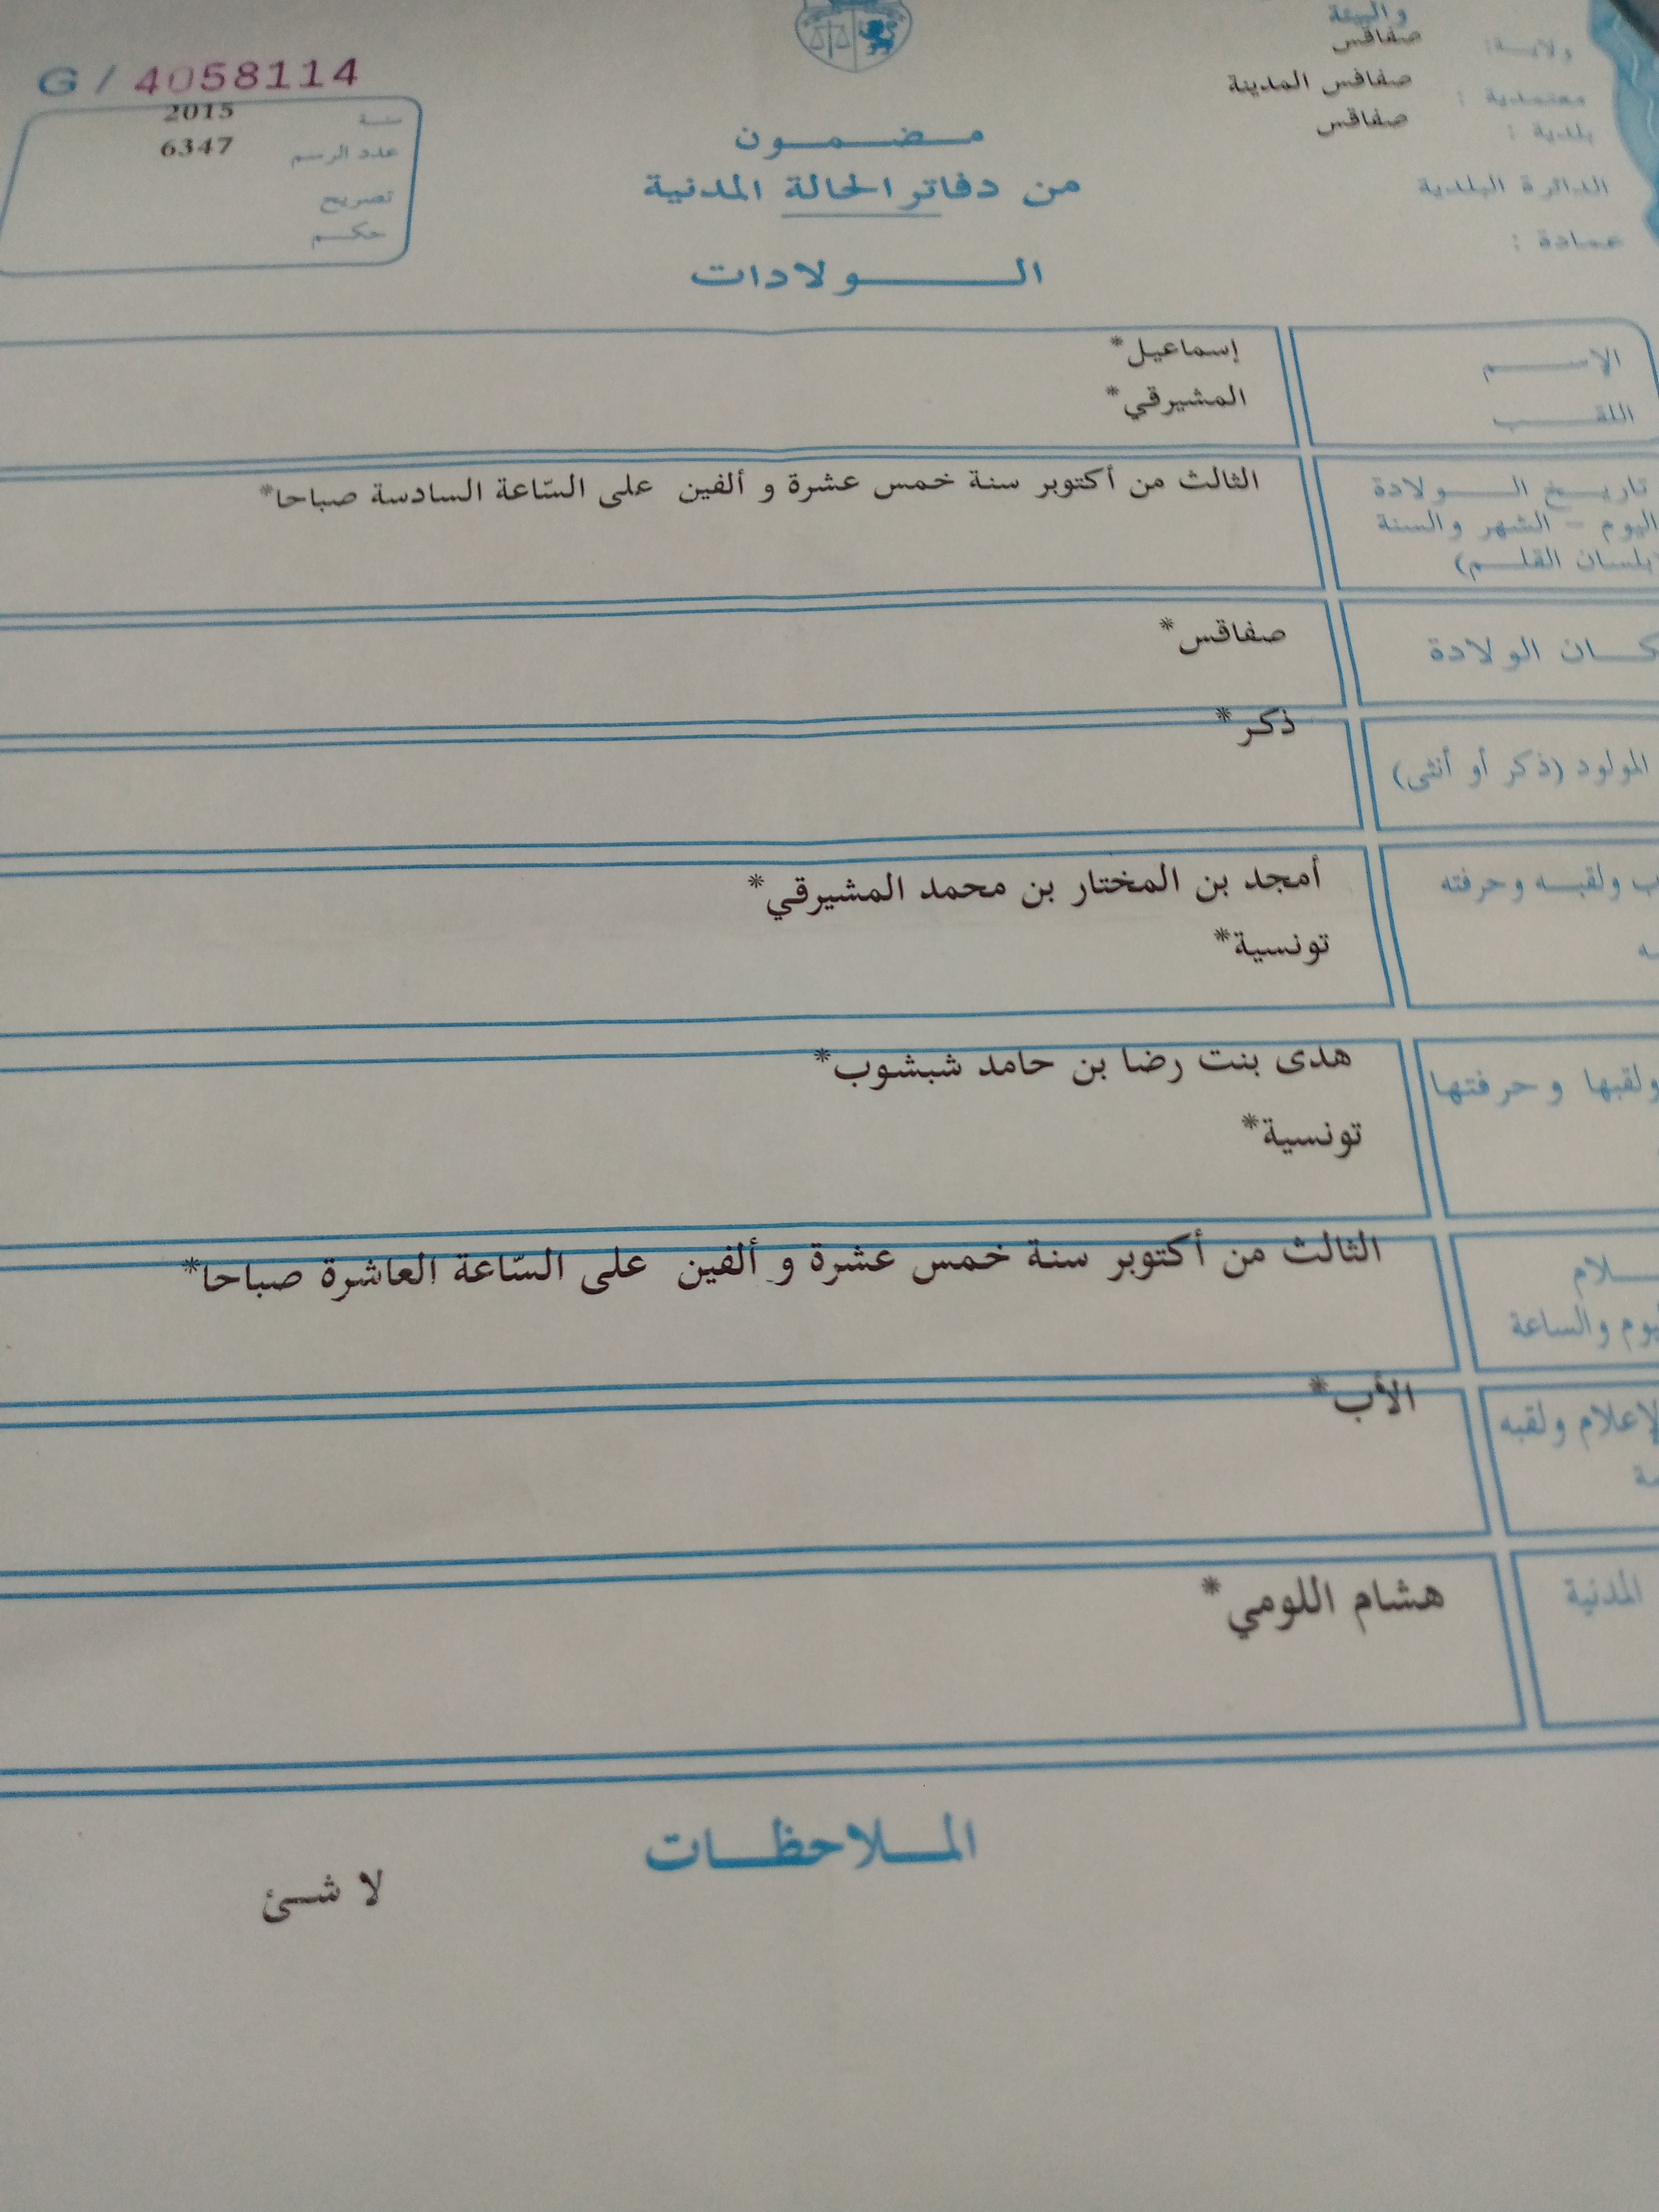 والبيئة
ولاية: صفاقس
معتمدية: صفاقس المدينة
بلدية: صفاقس
الدائرة البلدية
عمادة:
G / 4058114
سنة 2015
عدد الرسم 6347
تصريح
حكم
مضمون
من دفاتر الحالة المدنية
الولادات
الاسم إسماعيل*
اللقب المشيرقي*
تاريخ الولادة الثالث من أكتوبر سنة خمس عشرة و ألفين على السّاعة السادسة صباحا*
اليوم - الشهر والسنة
(بلسان القلم)
كان الولادة صفاقس*
المولود (ذكر أو أنثى) ذكر*
ب ولقبه وحرفته أمجد بن المختار بن محمد المشيرقي*
تونسية*
ولقبها وحرفتها هدى بنت رضا بن حامد شبشوب*
تونسية*
لام الثالث من أكتوبر سنة خمس عشرة و ألفين على السّاعة العاشرة صباحا*
يوم والساعة
لإعلام ولقبه الأب*
المدنية هشام اللومي*
الملاحظات
لا شئ